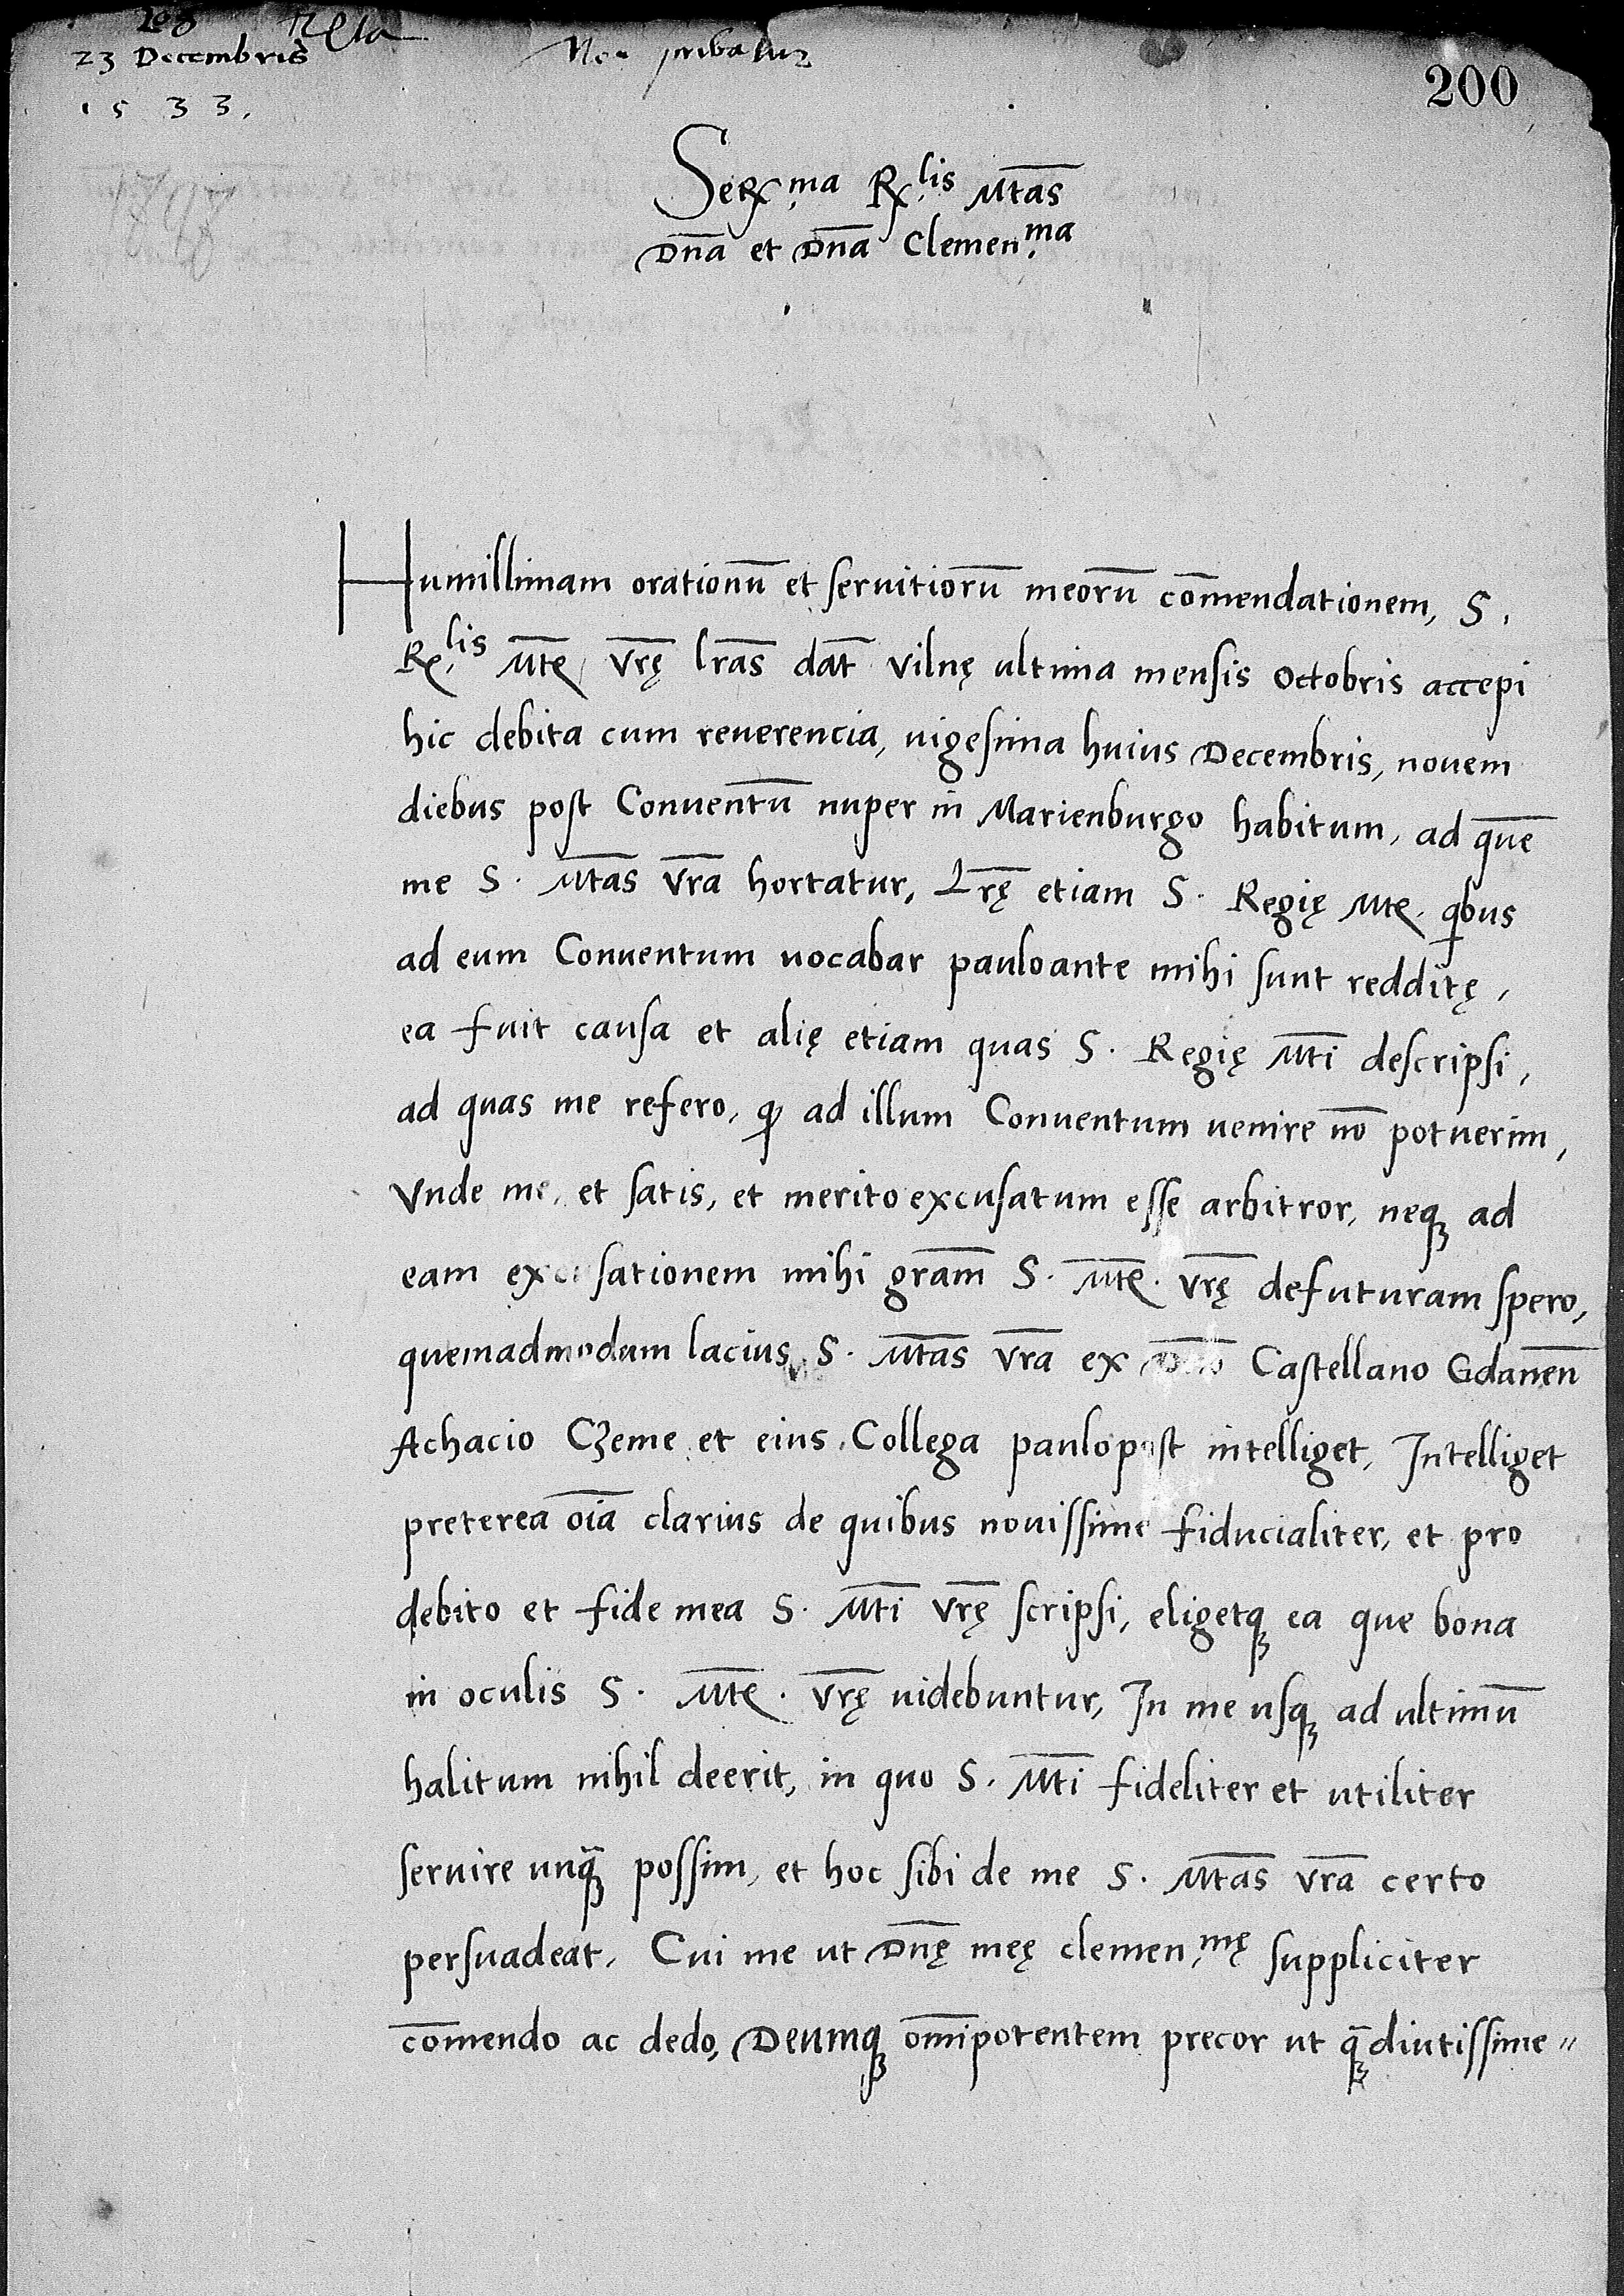 23 Decembris
1533.
200
Serx.ma Rx.lis Mtas
Dna et Dna Clemen.ma
Humillimam orationũ et seruitiorũ meorũ cõmendationem, S.
Rx.lis Mte vrę lras dat vilnę ultima mensis Octobris accepi
hic debita cum reuerencia, uigesima huius Decembris, nouem
diebus post Conuentũ nuper in Marienburgo habitum, ad quẽ
me S. Mtas vra hortatur, Lrę etiam S. Regię Mte. qbus
ad eum Conuentum uocabar pauloante mihi sunt redditę,
ea fuit causa et alię etiam quas S. Regię Mti descripsi,
ad quas me refero, ꝙ ad illum Conuentum uenire nõ potuerim,
Vnde me, et satis, et merito excusatum esse arbitror, neqꝫ ad
eam excusationem mihi gram S. Mte. vrę defuturam spero,
quemadmodum lacius S. Mtas vra ex Dno Castellano Gdaneñ
Achacio Czeme et eius Collega paulopost intelliget, Intelliget
preterea oĩa clarius de quibus nouissime fiducialiter, et pro
debito et fide mea S. Mti vrę scripsi, eligetqꝫ ea que bona
in oculis S. Mte. vrę uidebuntur, In me usqꝫ ad ultimũ
halitum nihil deerit, in quo S. Mti fideliter et utiliter
seruire unqꝫ̃ possim, et hoc sibi de me S. Mtas vra certo
persuadeat. Cui me ut Dnę meę clemen.mę suppliciter
cõmendo ac dedo, Deumqꝫ omĩpotentem precor ut qꝫ̃ diutissime=